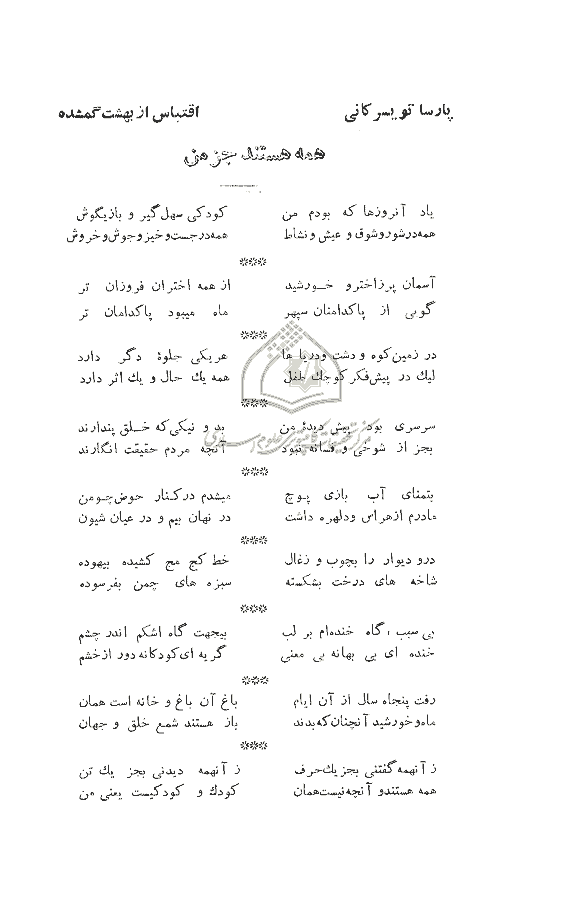 پارسا تویسرکانی اقتباس از بهشت گمشده
همه هستند جز من
یاد آنروزها که بودم من کودکی سهل گیر و بازیگوش
همه در شور و شوق و عیش و نشاط همه در جست و خیز و جوش و خروش
***
آسمان پر ز اختر و خورشید از همه اختران فروزان تر
گویی از پاکدامنان سپهر ماه میبود پاکدامان تر
***
در زمین کوه و دشت و دریا ها هر یکی جلوهٔ دگر دارد
لیك در پیش فکر کوچك طفل همه یك حال و یك اثر دارد
***
سرسری بود پیش دیدهٔ من بد و نیکی که خلق پندارند
بجز از شوخی و فسانه نبود آنچه مردم حقیقت انگارند
***
بتمنای آب بازی پوچ میشدم در کنار حوض چو من
مادرم از هراس و دلهره داشت در نهان بیم و در عیان شیون
***
در و دیوار را بچوب و زغال خط کج مج کشیده بیهوده
شاخه های درخت بشکسته سبزه های چمن بفرسوده
***
بی سبب، گاه خنده‌ام بر لب بیجهت گاه اشکم اندر چشم
خنده ای بی بهانه بی معنی گریه ای کودکانه دور از خشم
***
رفت پنجاه سال از آن ایام باغ آن باغ و خانه است همان
ماه و خورشید آنچنان که بدند باز هستند شمع خلق و جهان
***
ز آنهمه گفتنی بجز یك حرف ز آنهمه دیدنی بجز یك تن
همه هستند و آنچه نیست همان کودك و کودکیست یعنی من
مرکز تحقیقات کامپیوتری علوم اسلامی